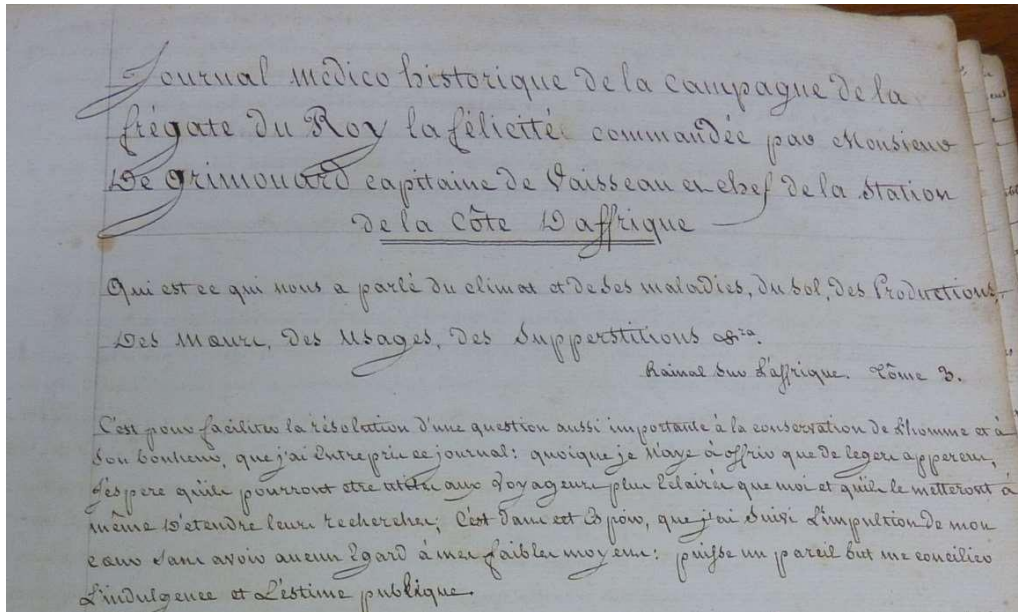 Journal médico historique de la Campagne de la
frégate du Roy la félicité commandée par Monsieur
De Grimouard capitaine de Vaisseau en chef de la Station
de la Côte D'affrique
Qui est ce qui nous a parlé du climat et de ses maladies, du sol, des Productions,
Des mœurs, des Usages, des Supperstitions &ca.
Rainal sur L'affrique. Tôme 3.
C'est pour faciliter la résolution d'une question aussi importante à la conservation de L'homme et à
son bonheur, que j'ai Entrepris ce journal: quoique je n'aye à offrir que de legers apperçus,
J'espere qu'ils pourront etre utiles aux Voyageurs plus Eclairés que moi et qu'ils le metteront à
même D'etendre leurs recherches; C'est dans cet Espoir, que j'ai suivi L'impultion de mon
cœur sans avoir aucun Egard à mes faibles moyens: puisse un pareil but me concilier
L'indulgence et L'estime publique.